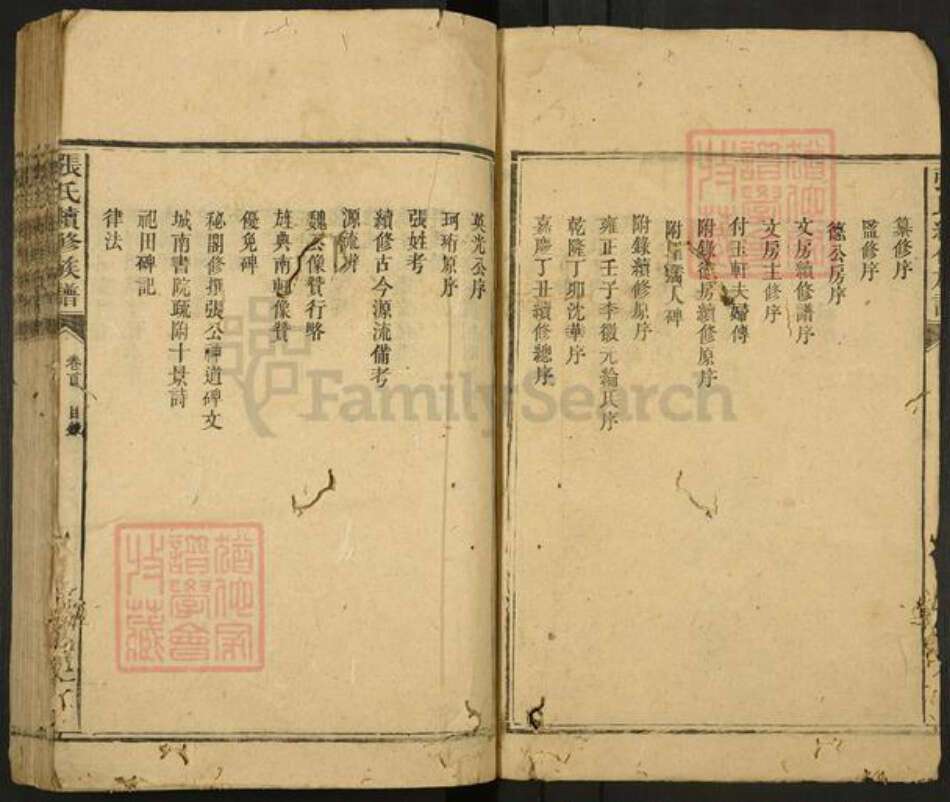 纂修序
監修序
德公房序
文房續修譜序
文房主修序
付玉軒夫婦傳
附錄德房續修原序
附 人碑
附錄續修原序
雍正壬子李徽元綸氏序
乾隆丁卯沈華序
嘉慶丁丑續修總序
英光公序
珂珩原序
張姓考
續修古今源流備考
源流辨
魏公像贊行略
旌典南軒像贊
優免碑
秘閣修撰張公神道碑文
城南書院疏附十景詩
祀田碑記
律法
張氏續修族譜
卷首
目錄
FamilySearch
譜學會
收藏